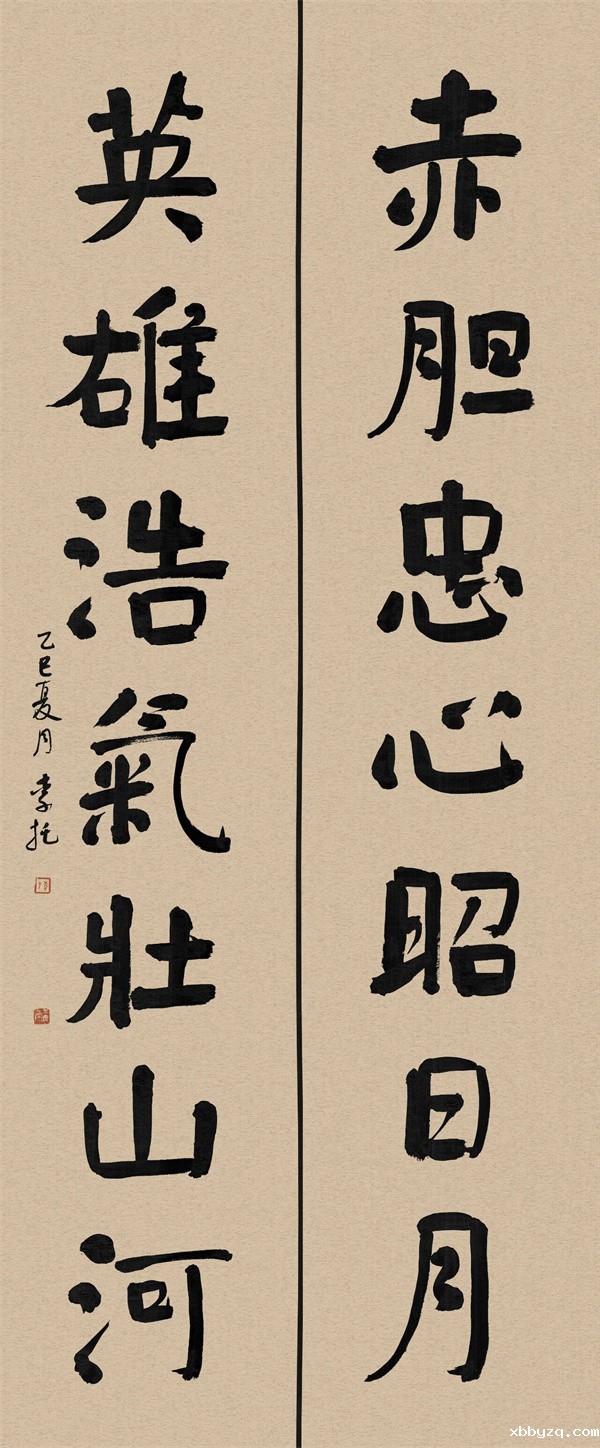 赤胆忠心昭日月
英雄浩氣壯山河
乙巳夏月 李托
xbbyzq.com